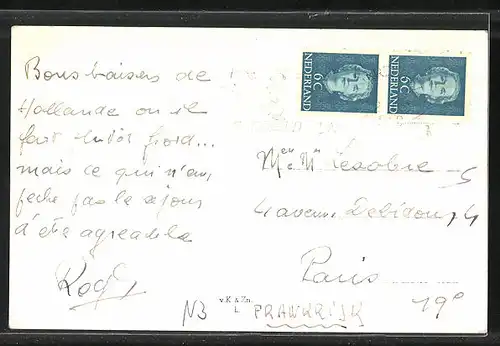 Bons baisers de
Hollande où il
fait plutôt froid...
mais ce qui n'em
peche pas le séjour
d'être agréable
NEDERLAND
6C
NEDERLAND
6C
Mr et Mme Lesobre
4 avenue Debidour, 4
Paris
19e
v.K & Zn.
L
N3
FRANKRIJK